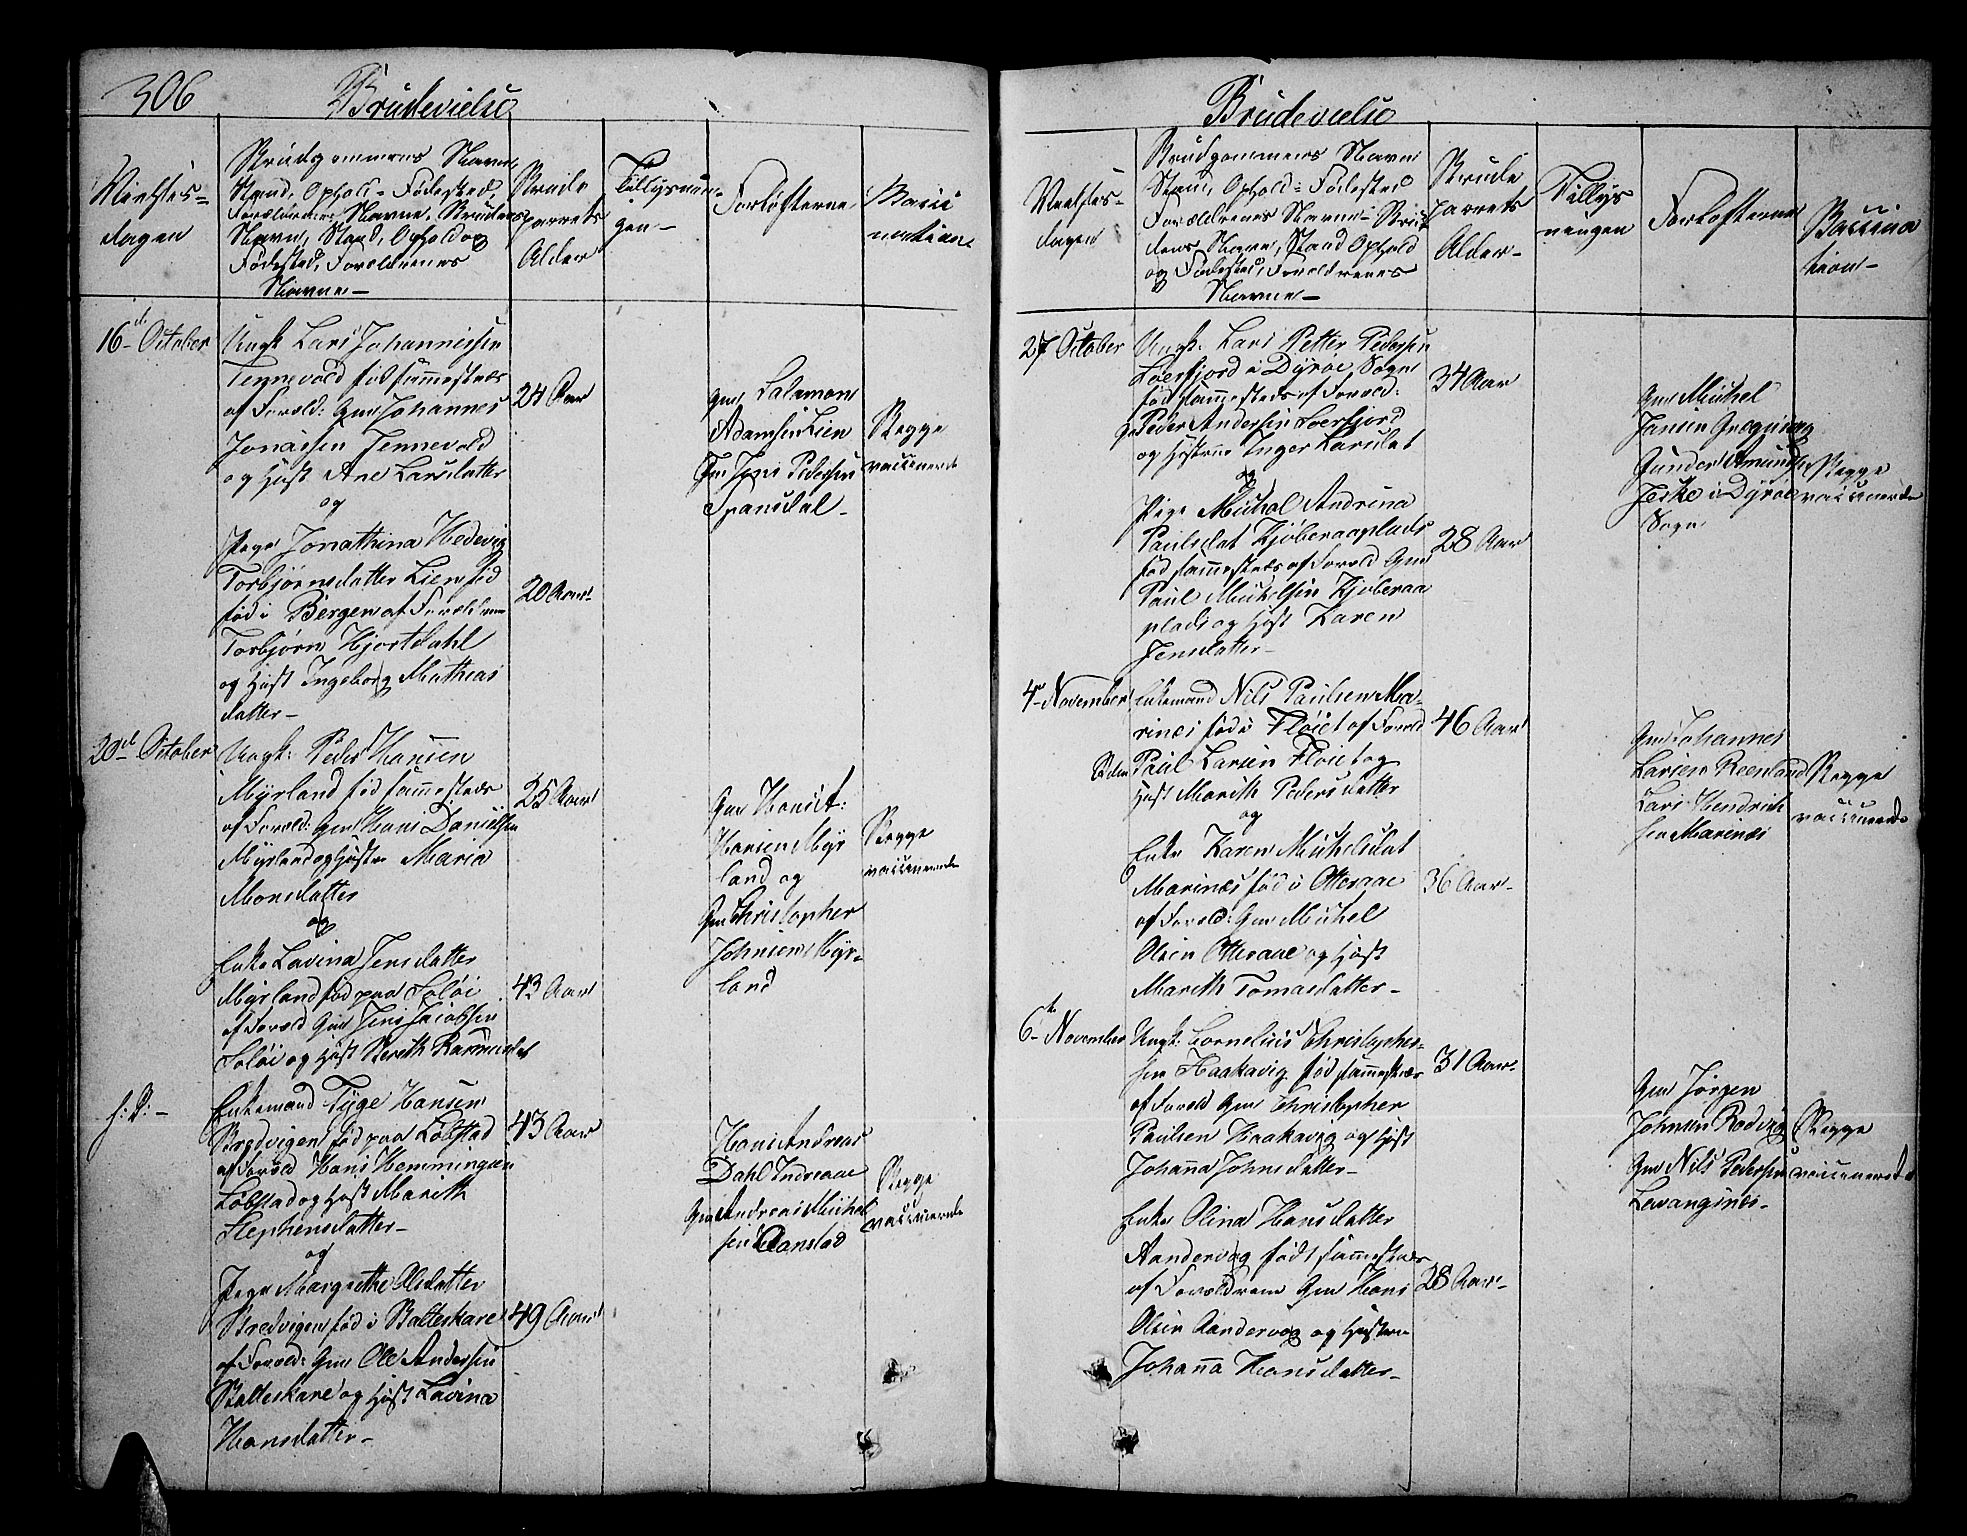 306
Brudevielse
Vielses-
dagen
Brudgommens Navn,
Stand, Ophold- Fødested,
Forældrenes Navne. Brudens
Navn, Stand, Ophold og
Fødested, Forældrenes
Navne-
Brude
parrets
Alder
Tillysnin-
gen-
Forlofterne
Vacci
nation
16de October
Ungk Lars Johannissen
Tennevold fød sammesteds
af Foræld: Gm Johannes
Jonassen Tennevold
og Hust Ane Larsdatter
og
Pige Jonathina Hedevig
Torbjørnsdatter Lien fød
fød i Bergen af Forældrene
Torbjørn Hjortdahl
og Hust Ingeborg Mathias
datter-
24 Aar
20 Aar
Gm Salamon
Adamsen Lien
Gm Jens Pedersen
Spansdal-
Begge
vaccinerede
20de October
Ungk: Peder Hansen
Myrland fød sammesteds
af Foræld: Gm Hans Danielsen
Myrland og Hustru Maria
Monsdatter
og
Enke Lavina Jensdatter
Myrland fød paa Soløi
af Foræld Gm Jens Jacobsen
Soløi og Hust Bereth Rasmusdat
25 Aar
43 Aar
Gm Hans A:
Hansen Myr
land og
Gm Christopher
Johnsen Myr-
land
Begge
vaccinerede
s: D:-
Enkemand Tyge Hansen
Bredvigen fød paa Løbstad
af Foræld Hans Hemmingsen
Løbstad og Hust Marith
Stephensdatter-
og
Pige Margrethe Olsdatter
Bredvigen fød i Balteskard
af Foræld: Gm Ole Andersen
Balteskard og Hust Lavina
Hansdatter-
43 Aar
49 Aar
Hans Andreas
Dahl Indreaae
Gm Andreas Michel
sen Aanstad
Begge
vaccinerede
Brudevielse
Vielses-
dagen
Brudgommens Navn
Stand, Ophold- Fødested
Forældrenes Navne- Bru
dens Navn, Stand Ophold
og Fødested, Forældrenes
Navne-
Brude
parrets
Alder-
Tillys
ningen
Forlofterne
Vaccina
tion-
27 October
Ungk: Lars Petter Pedersen
Loerfjord i Dyrøe Sogn
fød sammesteds af Foræld:
Gm Peder Andersen Loerfjord
og Hustrue Inger Larsdat
og
Pige Michal Andrina
Paulsdat Kjøberaaplads
fød sammesteds af Foræld Gm
Paul Michelsen Kjøberaa
plads og Hust Karen
Jensdatter-
34 Aar
28 Aar
Gm Michel
Jansen
Gunder Amunds
i Dyrøe
Sogn
Begge
vaccinerede
4de November
Enkemand Nils Paulsen Ma-
rinæs fød i Fløiet af Foræld
Paul Larsen Fløiet og
Hust Marith Pedersdatter
og
Enke Karen Michelsdat
Marinæs fød i Otteraae
af Foræld: Gm Michel
Olsen Otteraae og Hust
Marith Tomasdatter-
46 Aar
36 Aar-
Gm Johannes
Larsen Reenland
Lars Hendrich
sen Marinæs
Begge
vaccinerede
6te November
Ungk: Cornelius Christopher-
sen Haakavig fød sammesteds
af Foræld Gm Christopher
Paulsen Haakavig og Hust
Johanna Johnsdatter-
Enke Olina Hansdatter
Aandervog født sammesteds
af Forældrene Gm Hans
Olsen Aandervog og Hustrue
Johanna Hansdatter-
31 Aar-
28 Aar-
Gm Jørgen
Johnsen Rødvig
Gm Nils Pedersen
Levangsnæs-
Begge
vaccinerede